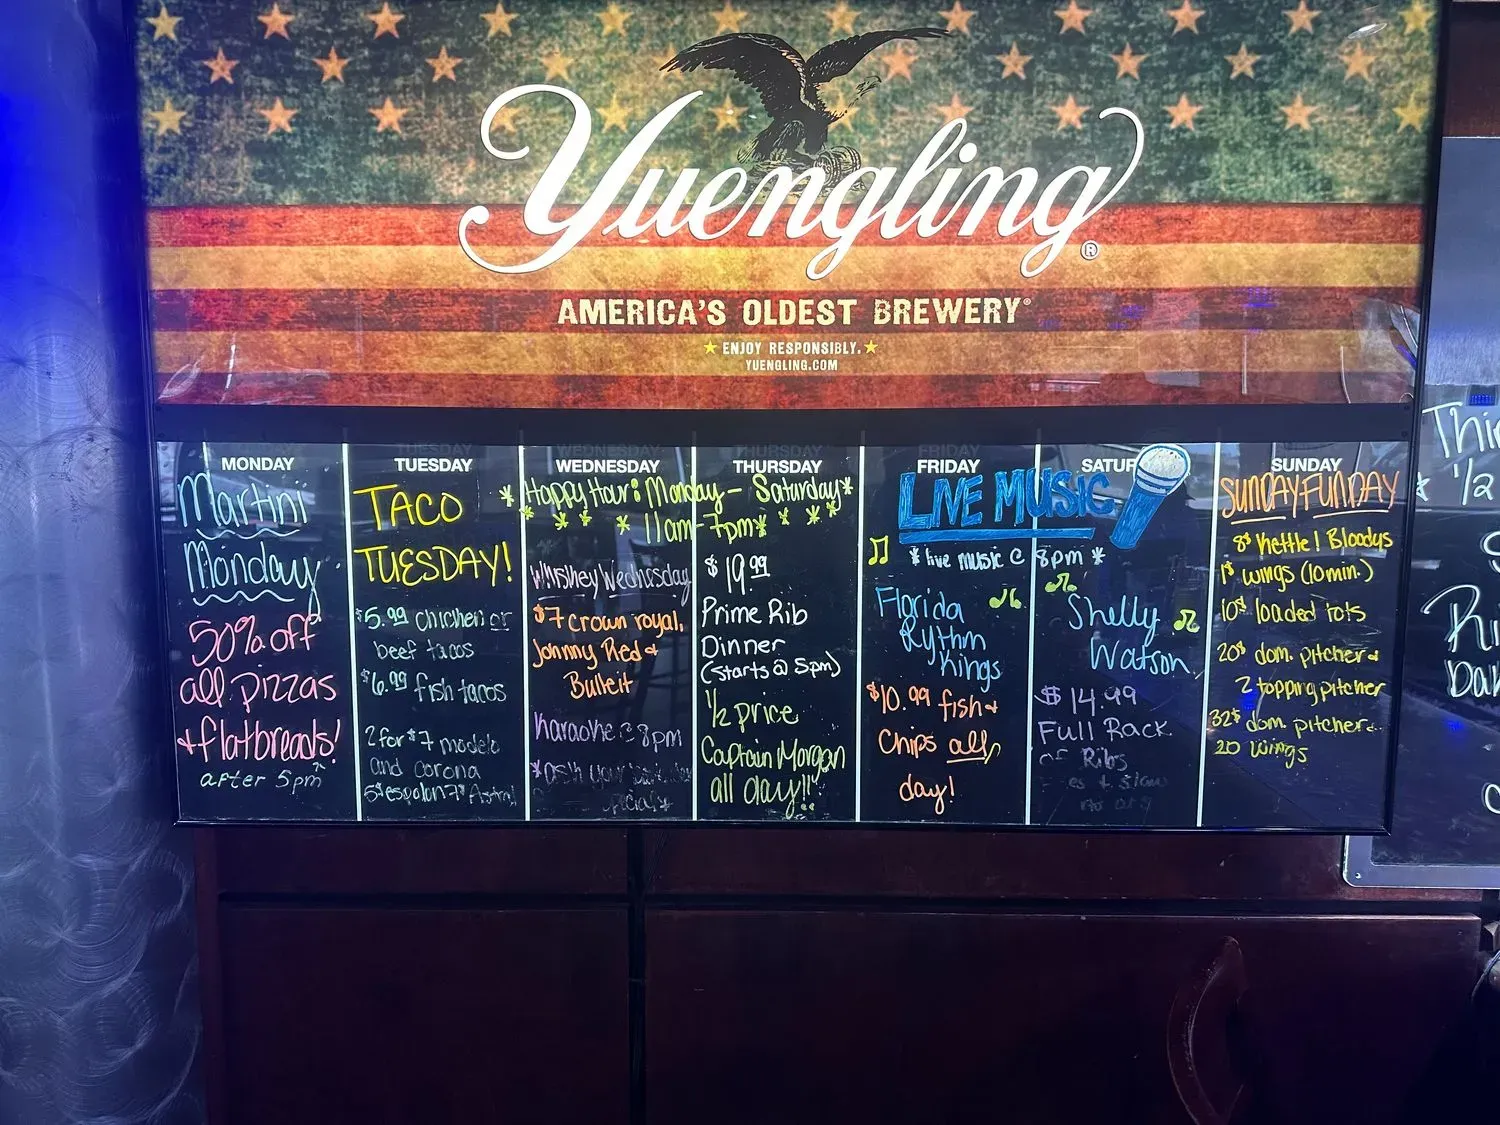 Yuengling®
AMERICA'S OLDEST BREWERY®
★ ENJOY RESPONSIBLY. ★
YUENGLING.COM
MONDAY
Martini
Monday
50% off
all pizzas
+ flatbreads!
after 5pm
TUESDAY
TACO
TUESDAY!
$5.99 chicken or
beef tacos
$6.99 fish tacos
2 for $7 modelo
and corona
5$ espolon 7$
WEDNESDAY
THURSDAY
* Happy Hour: Monday - Saturday *
* * * 11am-7pm * * * *
Whiskey Wednesday
$7 crown royal,
Johnny Red +
Bulleit
Karaoke @ 8pm
*ask your
specials*
$19.99
Prime Rib
Dinner
(starts @ 5pm)
1/2 price
Captain Morgan
all day!!
FRIDAY
SATUR
LIVE MUSIC
* live music @ 8pm *
Florida
Rythm
Kings
$10.99 fish +
Chips all
day!
Shelly
Watson
$14.99
Full Rack
of Ribs
SUNDAY
SUNDAY FUNDAY
8$ Kettle 1 Bloodys
1$ wings (10 min.)
10$ loaded tots
20$ dom. pitcher +
2 topping pitcher
32$ dom. pitcher +
20 wings
Thir
* 1/2